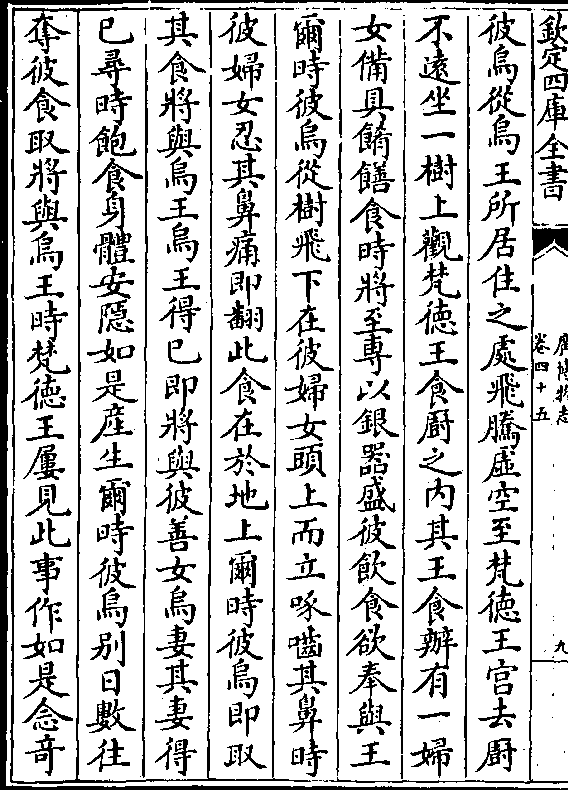 欽定四庫全書
廣博物志
卷四十五
九
彼烏從烏王所居住之處飛騰虛空至梵徳王宫去厨
不逺坐一樹上觀梵徳王食厨之内其王食辦有一婦
女備具餚饍食時將至専以銀器盛彼飲食欲奉與王
爾時彼烏從樹飛下在彼婦女頭上而立啄嚙其鼻時
彼婦女忍其鼻痛即翻此食在於地上爾時彼烏即取
其食將與烏王烏王得已即將與彼善女烏妻其妻得
已尋時飽食身體安隱如是産生爾時彼烏别日數往
奪彼食取將與烏王時梵徳王屢見此事作如是念竒